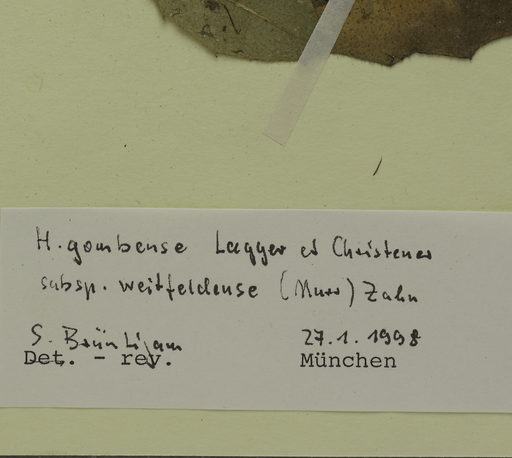 H. gombense Lagger et Christener
subsp. weitfeldense (Murr) Zahn
S. Bräutigam 27.1.1998
Det. - rev. München